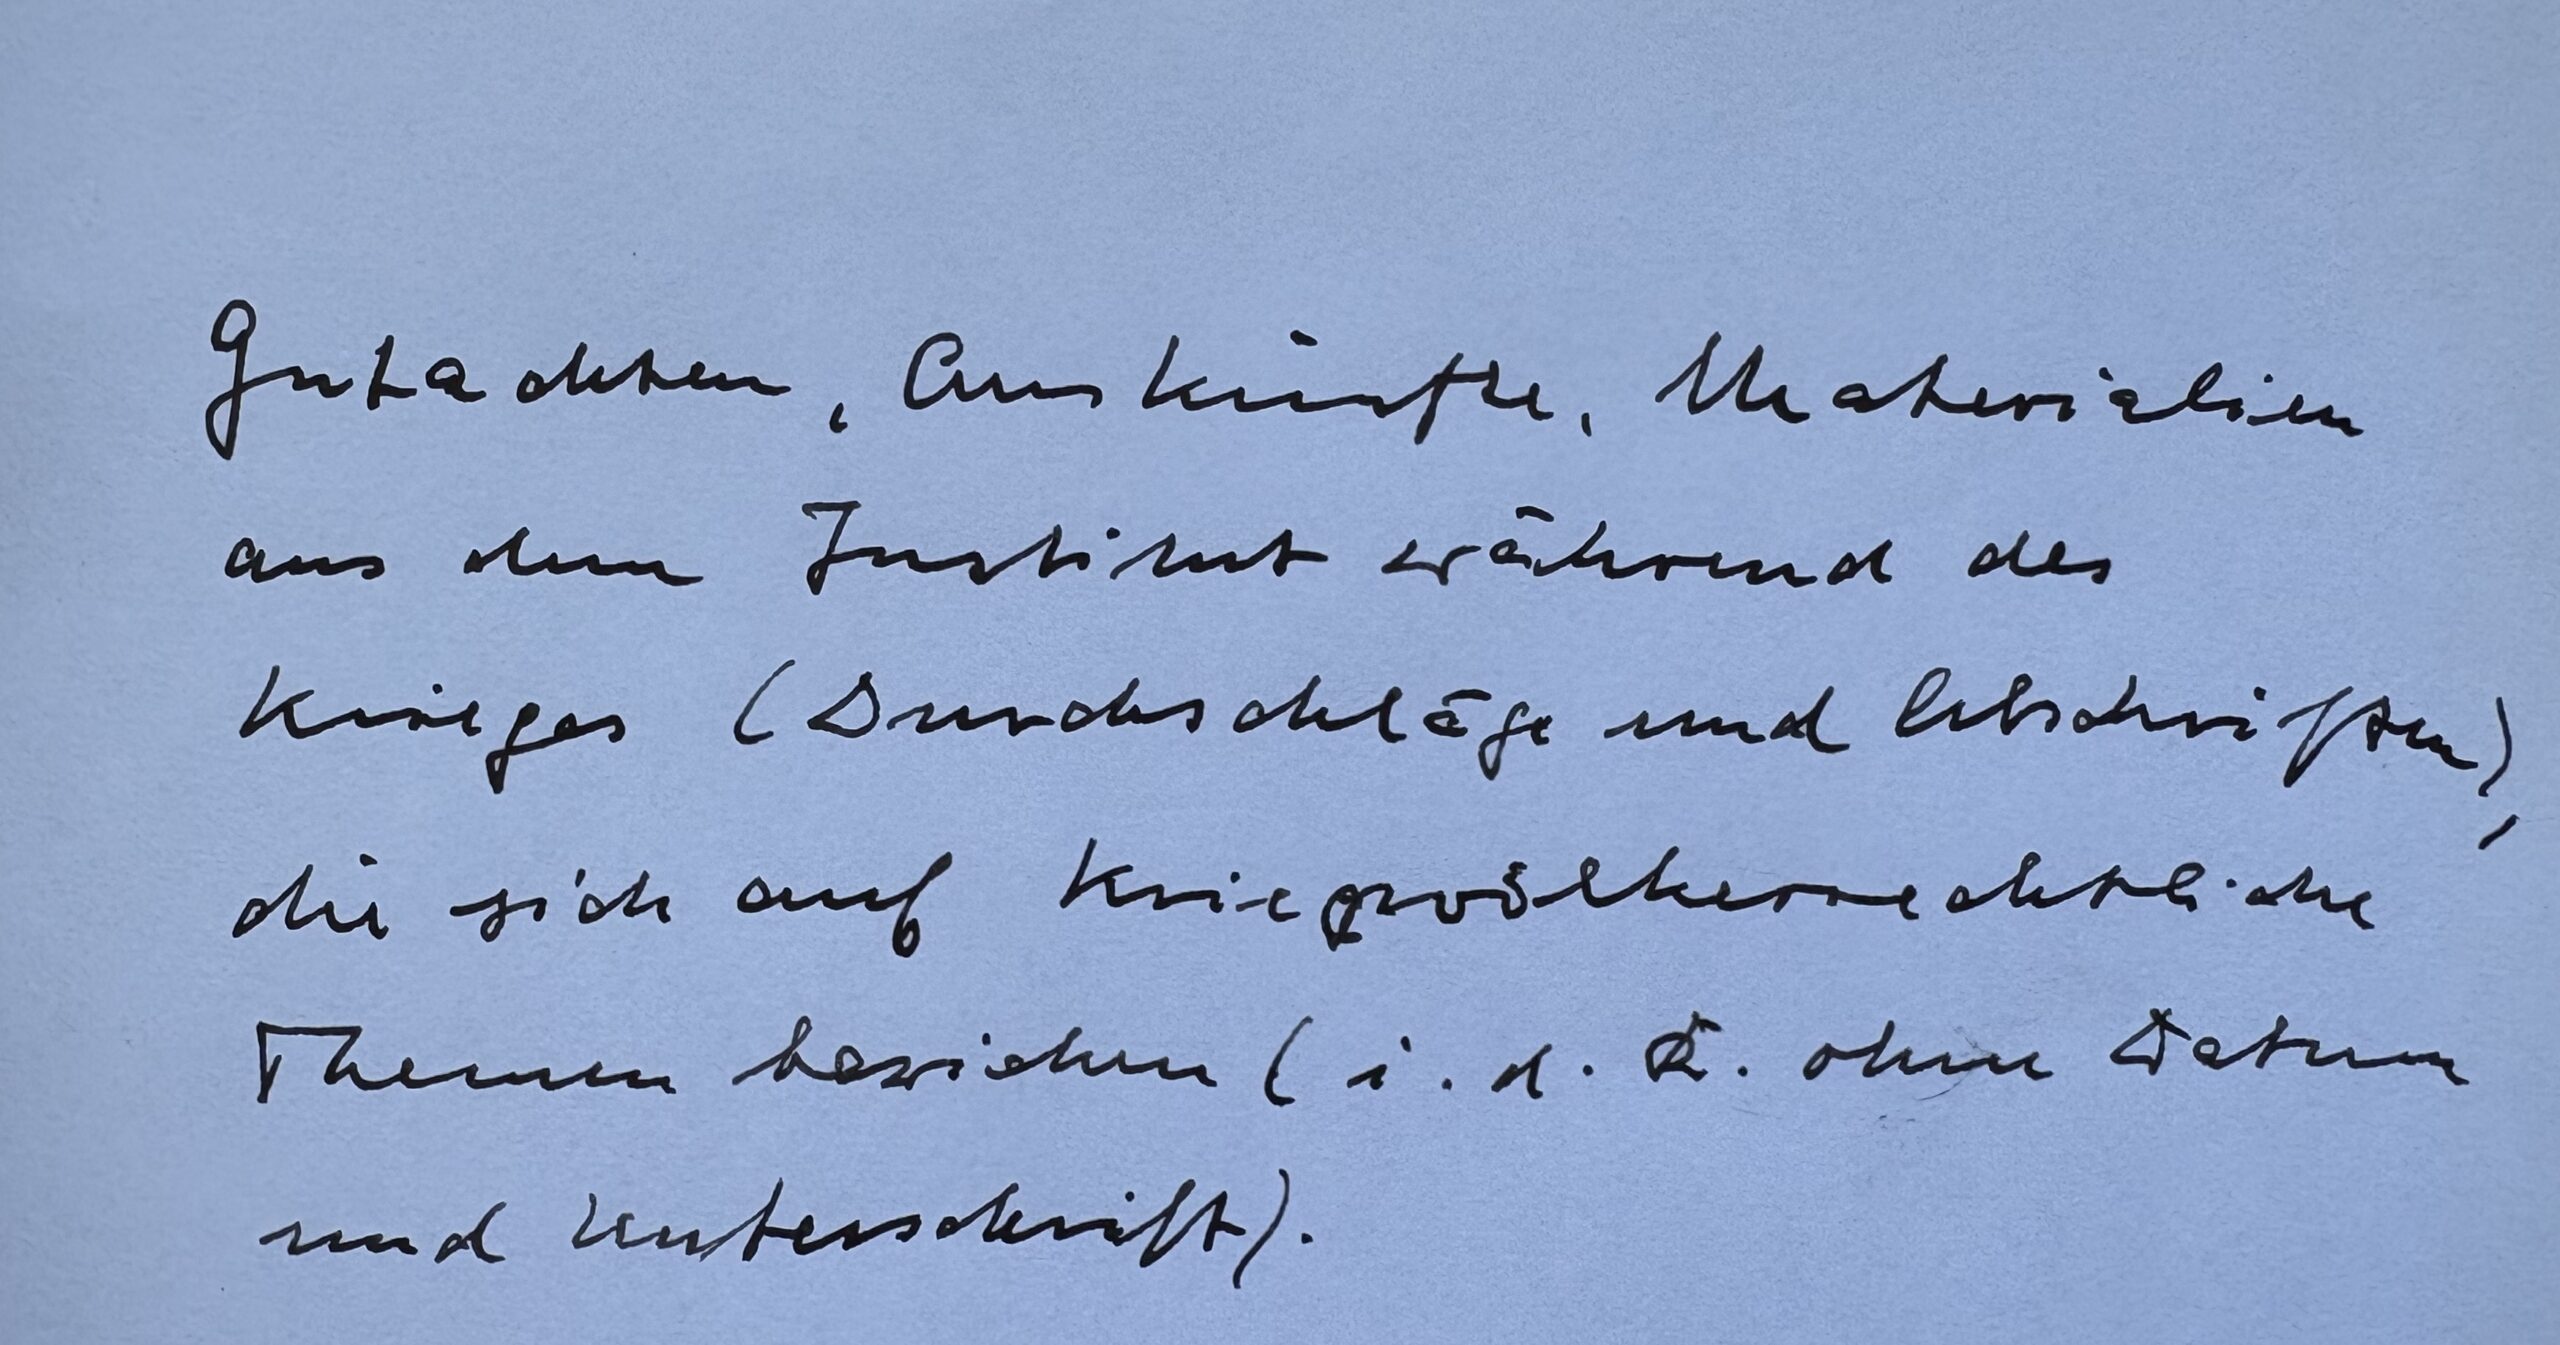 Gutachten, Auskünfte, Materialien
aus dem Institut während des
Krieges (Durchschläge und Abschriften),
die sich auf kriegsvölkerrechtliche
Themen beziehen (i. d. R. ohne Datum
und Unterschrift).